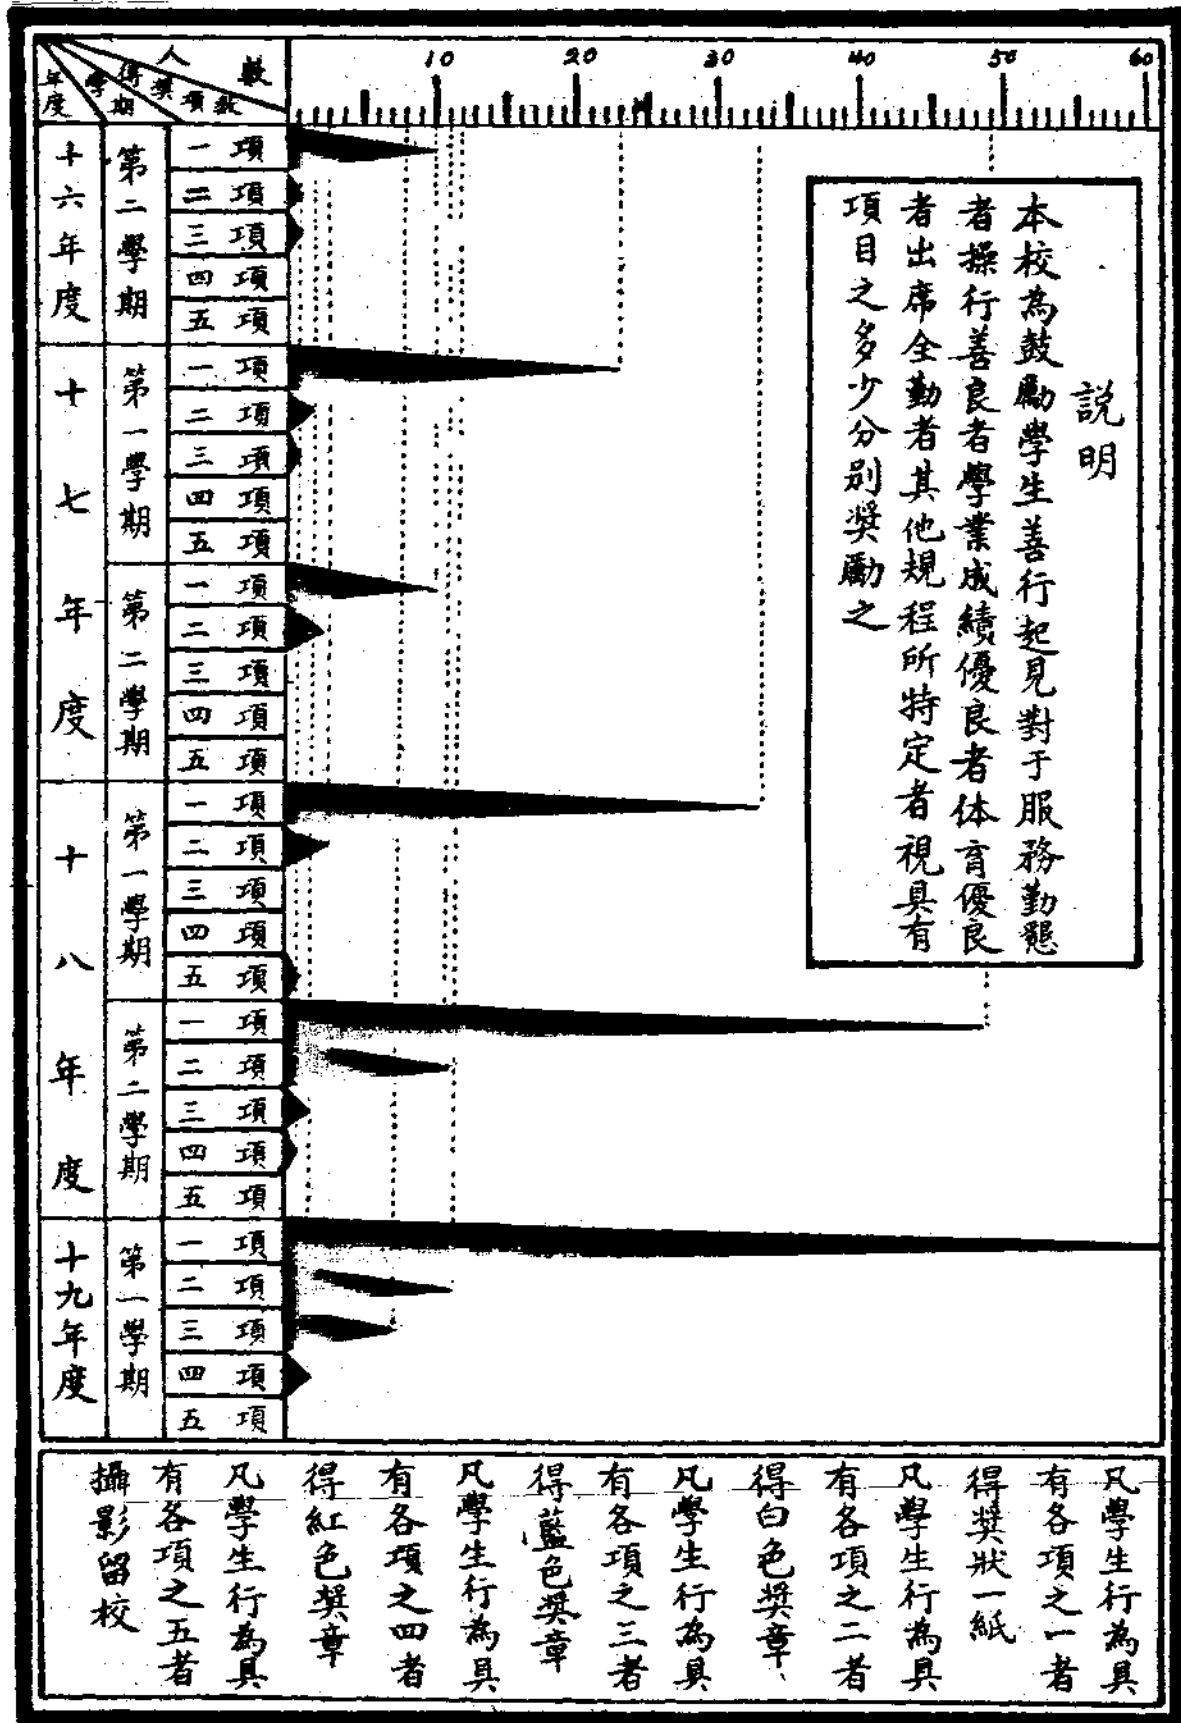 人數
得獎項數
學期
年度
10 20 30 40 50 60
十六年度
第二學期
一項
二項
三項
四項
五項
十七年度
第一學期
一項
二項
三項
四項
五項
第二學期
一項
二項
三項
四項
五項
十八年度
第一學期
一項
二項
三項
四項
五項
第二學期
一項
二項
三項
四項
五項
十九年度
第一學期
一項
二項
三項
四項
五項
説明
本校為鼓勵學生善行起見對于服務勤懇
者操行善良者學業成績優良者体育優良
者出席全勤者其他規程所特定者視具有
項目之多少分別奨勵之
凡學生行為具
有各項之一者
得奨狀一紙
凡學生行為具
有各項之二者
得白色奨章
凡學生行為具
有各項之三者
得藍色奨章
凡學生行為具
有各項之四者
得紅色奨章
凡學生行為具
有各項之五者
攝影留校